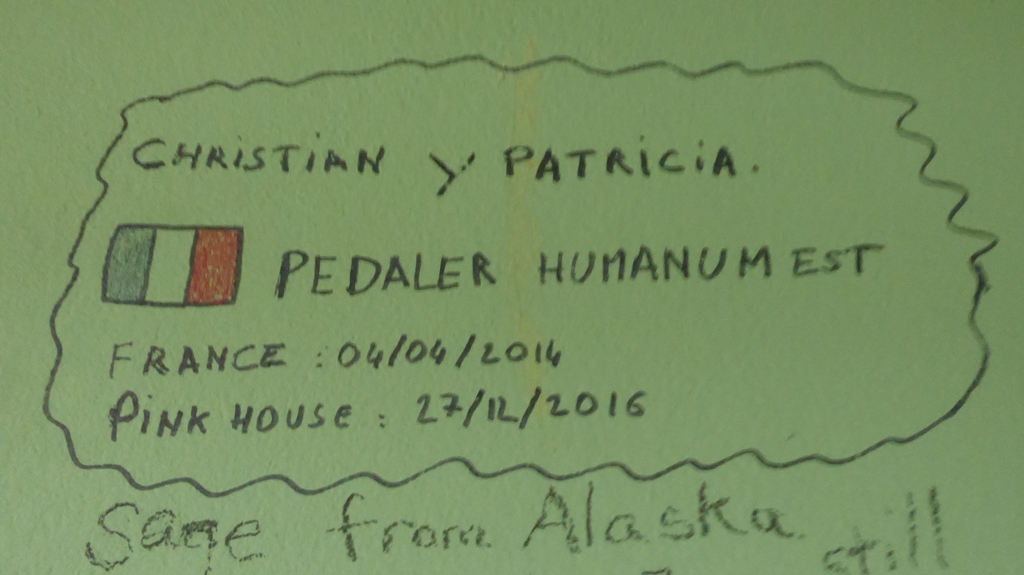 CHRISTIAN y PATRICIA.
PEDALER HUMANUM EST
FRANCE : 04/04/2014
PINK HOUSE : 27/12/2016
Sage from Alaska
still